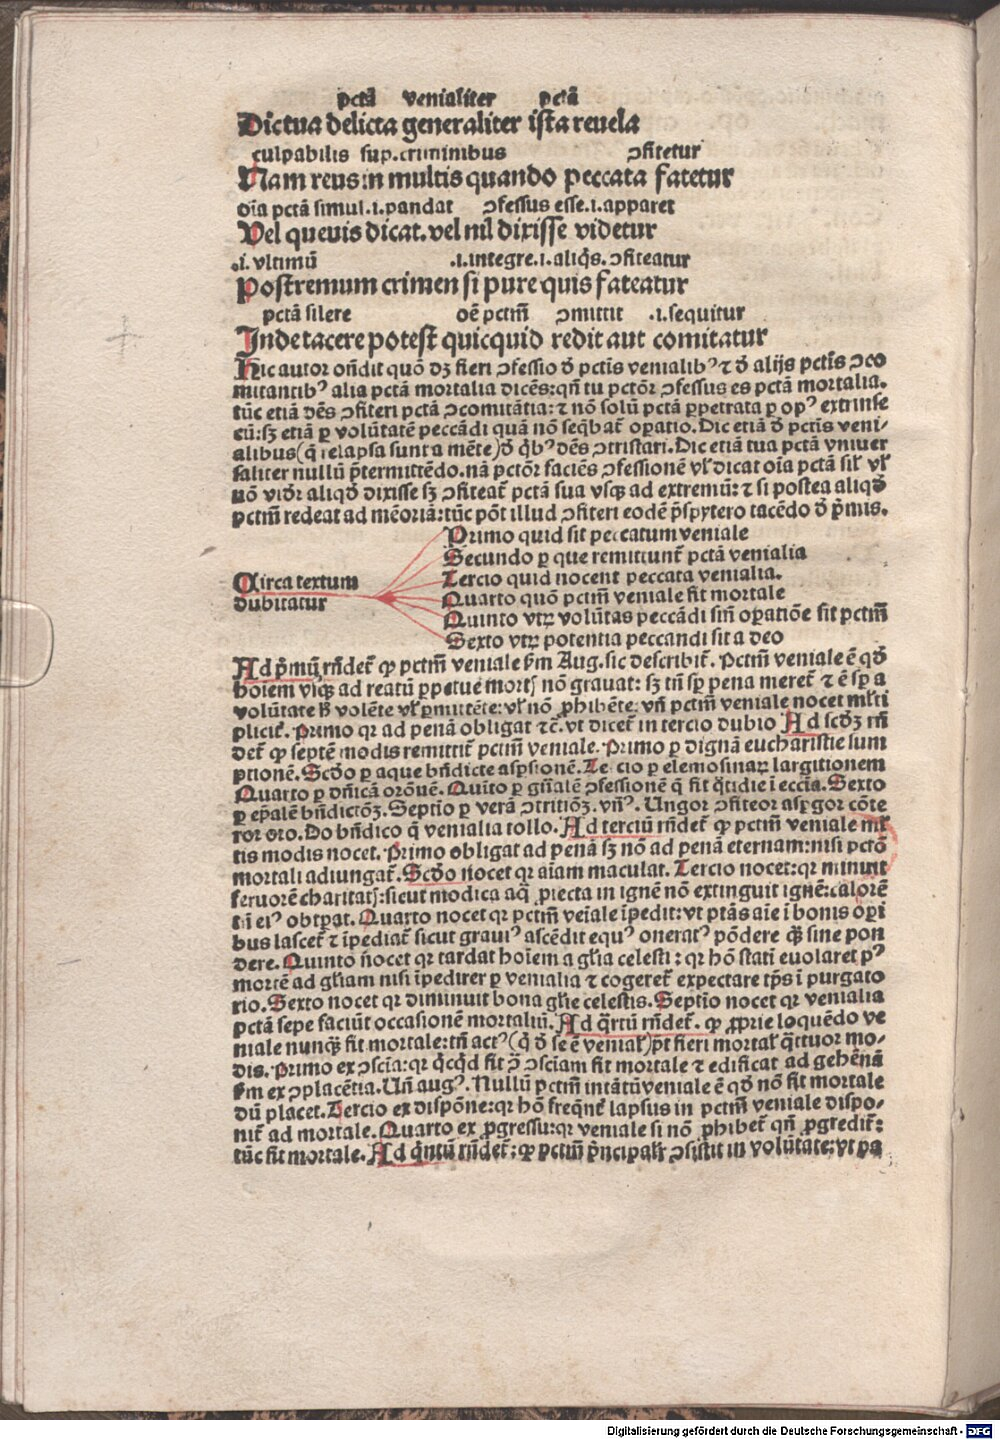 pctā venialiter pctā
Dic tua delicta generaliter ista reuela
culpabilis sup. criminibus ɔfitetur
Nam reus in multis quando peccata fatetur
oīa pctā simul .i. pandat ɔfessus esse .i. apparet
Vel queuis dicat. vel nil dixisse videtur
.i. vltimū .i. integre .i. aliq̄s. ɔfiteatur
Postremum crimen si pure quis fateatur
pctā silere oē pctm̄ ɔmittit .i. sequitur
Inde tacere potest quicquid redit aut comitatur
Hic autor oñdit quō dꝫ fieri ɔfessio d̄ pctīs venialibꝰ ⁊ d̄ alijs pctīs ɔco
mitantibꝰ alia pctā mortalia dicēs: qñ tu pctōr ɔfessus es pctā mortalia.
tūc etiā dēs ɔfiteri pctā ɔcomitātia: ⁊ nō solū pctā ꝑpetrata ꝑ opꝰ extrinse
cū: sꝫ etiā ꝑ volūtatē peccādi quā nō seq̄bat̄ oꝑatio. Dic etiā d̄ pctīs veni-
alibus (q̄ relapsa sunt a mēte) d̄ q̄bꝰ dēs ɔtristari. Dic etiā tua pctā vniuer
saliter nullū p̄termittēdo. nā pctōr faciēs ɔfessionē vł dicat oīa pctā sił vł
nō vidr̄ aliqd̄ dixisse sꝫ ɔfiteat̄ pctā sua vsqꝫ ad extremū: ⁊ si postea aliqd̄
pctm̄ redeat ad mēoriā: tūc pōt illud ɔfiteri eodē p̄sbytero tacēdo d̄ p̄mis.
Primo quid sit peccatum veniale
Secundo ꝑ que remittunt̄ pctā venialia
Circa textum Tercio quid nocent peccata venialia.
dubitatur Quarto quō pctm̄ veniale fit mortale
Quinto vtꝝ volūtas peccādi sin̄ oꝑatiōe sit pctm̄
Sexto vtꝝ potentia peccandi sit a deo
Ad p̄mū rñdet̄ ꝙ pctm̄ veniale ẜm Aug. sic describit̄. Pctm̄ veniale ē qd̄
hoīem vsqꝫ ad reatū ꝑpetue mort{is} nō grauat: sꝫ tñ sꝑ pena meret̄ ⁊ ē sꝑ a
volūtate vł volēte vł ꝑmittēte: vł nō ꝓhibēte: vñ pctm̄ veniale nocet młti
plicit̄. Primo qꝛ ad penā obligat ⁊c̄. vt dicet̄ in tercio dubio Ad scd̄ꝫ rñ
det̄ ꝙ septē modis remittit̄ pctm̄ veniale. Primo ꝑ dignā eucharistie sum
ptionē. Scd̄o ꝑ aque bñdicte asꝑsionē. Tercio ꝑ elemosinaꝝ largitionem
Quarto ꝑ dñicā orōnē. Quīto ꝑ gñalē ɔfessionē q̄ fit q̄tidie ī eccīa. Sexto
ꝑ epālē bñdictōꝫ. Septīo ꝑ verā ɔtritiōꝫ. vñꝰ. Ungor ɔfiteor asꝑgor cōte
ror oro. Do bñdico q̄ venialia tollo. Ad terciū rñdet̄ ꝙ pctm̄ veniale mł
tis modis nocet. Primo obligat ad penā sꝫ nō ad penā eternam: nisi pctō
mortali adiungat̄. Scd̄o nocet qꝛ aīam maculat. Tercio nocet: qꝛ minuit
feruorē charitat{is}: sicut modica aq̄ ꝓiecta in ignē nō extinguit ignē: calorē
tñ eiꝰ obtꝑat. Quarto nocet qꝛ pctm̄ veniale īpedit: vt ptās aīe ī bonis oꝑi
bus lascet̄ ⁊ īpediat̄ sicut grauiꝰ ascēdit equꝰ oneratꝰ pōdere q̄ꝫ sine pon
dere. Quinto nocet qꝛ tardat hoīem a gl̄ia celesti: qꝛ hō stati euolaret pꝰ
mortē ad gl̄iam nisi īpediret̄ ꝑ venialia ⁊ cogeret̄ expectare tp̄s ī purgato
rio. Sexto nocet qꝛ diminuit bona gl̄ie celestis. Septīo nocet qꝛ venialia
pctā sepe faciūt occasionē mortaliū. Ad q̄rtū rñdet̄. ꝙ ꝓprie loquēdo ve
niale nunq̄ꝫ fit mortale: tñ actꝰ (q̄ d̄ se ē venial̄) pōt fieri mortal̄ q̄ttuor mo-
dis. Primo ex ɔscīa: qꝛ q̄cq̄d fit ɔ̄ ɔsciam fit mortale ⁊ edificat ad gehēnā
ẜm ex ɔplacētia. Uñ augꝰ. Nullū pctm̄ intātū veniale ē qd̄ nō fit mortale
dū placet. Tercio ex dispōne: qꝛ hō freq̄nt̄ lapsus in pctm̄ veniale dispo-
nit̄ ad mortale. Quarto ex ꝓgressu: qꝛ veniale si nō ꝓhibet̄ qñ ꝓgredit̄:
tūc fit mortale. Ad q̄ntū rñdet̄: ꝙ pctm̄ p̄ncipalr̄ ɔsistit in volūtate: vt pa
Digitalisierung gefördert durch die Deutsche Forschungsgemeinschaft - DFG